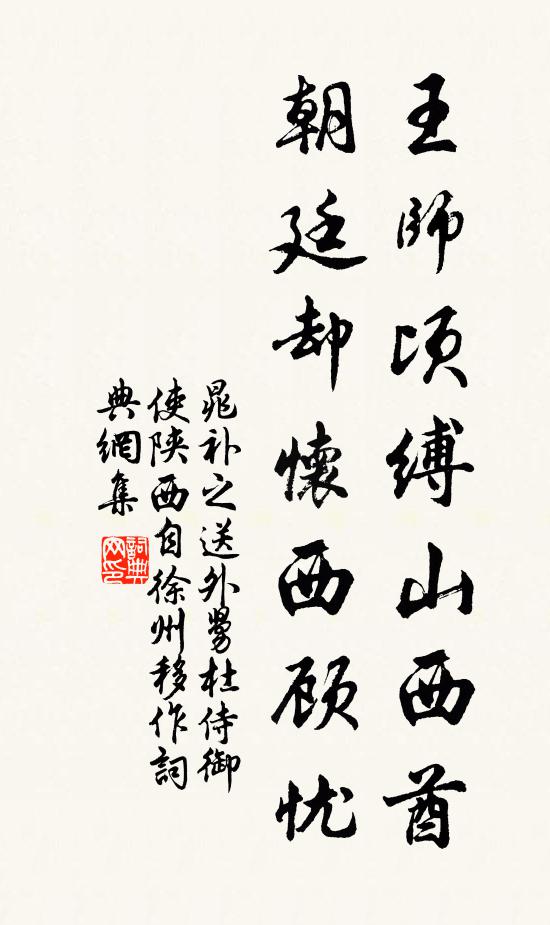 王師頃縛山西酋
朝廷却懷西顾忧
晁补之送外舅杜侍御
使陕西自徐州移作詞
典網集
詞典
网印